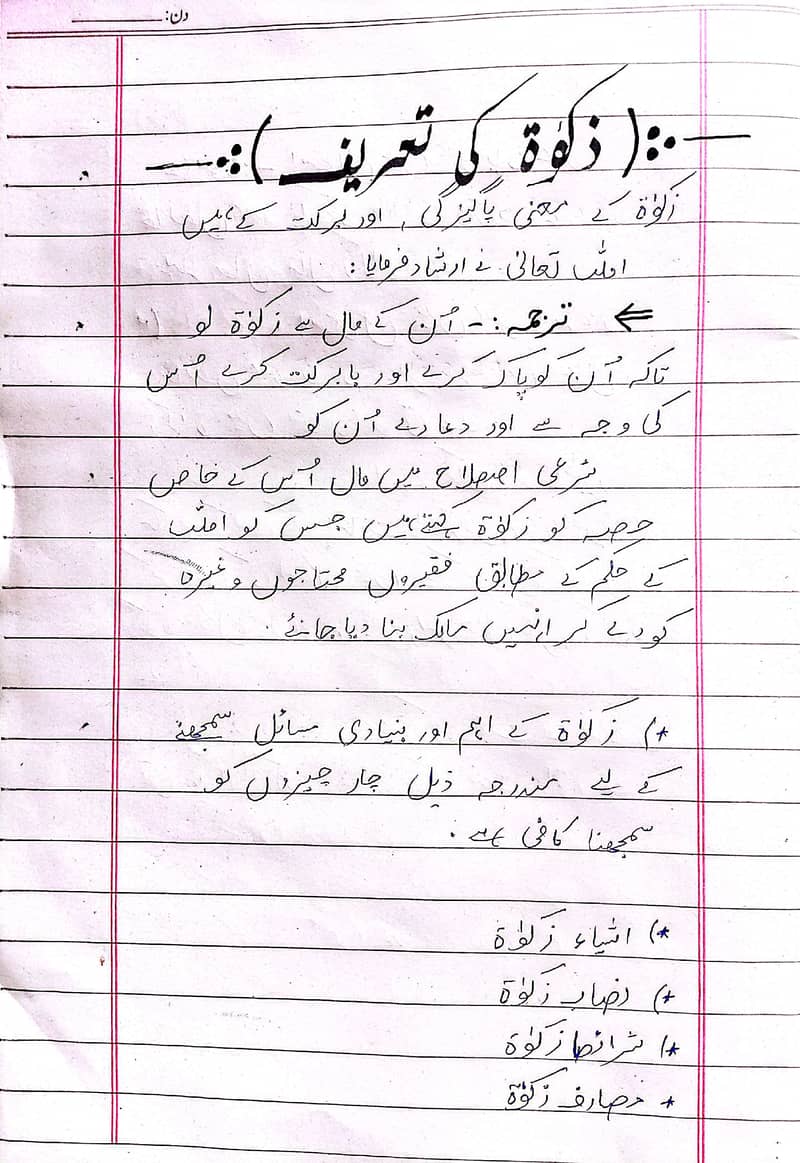 دن:
(زکوٰۃ کی تعریف)
زکوٰۃ کے معنی پاکیزگی، اور برکت کے ہیں
اللہ تعالیٰ نے ارشاد فرمایا:
ترجمہ:- اُن کے مال سے زکوٰۃ لو
تاکہ اُن کو پاک کرے اور بابرکت کرے اُس
کی وجہ سے اور دعا دے اُن کو
شرعی اصطلاح میں مال اُس کے خاص
حصہ کو زکوٰۃ کہتے ہیں جس کو اللہ
کے حکم کے مطابق فقیروں محتاجوں وغیرہ
کو دے کر انہیں مالک بنا دیا جائے۔
*) زکوٰۃ کے اہم اور بنیادی مسائل سمجھنے
کے لیے مندرجہ ذیل چار چیزوں کو
سمجھنا کافی ہے۔
*) اشیاء زکوٰۃ
*) نصاب زکوٰۃ
*) شرائط زکوٰۃ
* مصارف زکوٰۃ